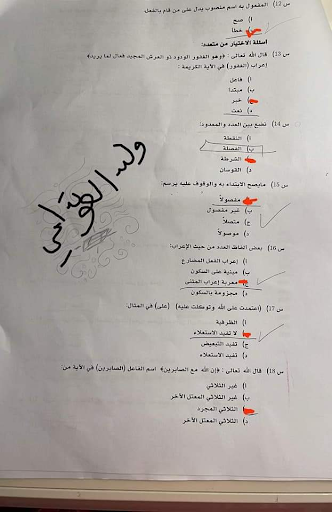 س 12) المفعول به اسم منصوب يدل على من قام بالفعل.
أ) صح
ب) خطأ
أسئلة الاختيار من متعدد:
س 13) قال الله تعالى : «وهو الغفور الودود ذو العرش المجيد فعال لما يريد»
إعراب (الغفور) في الآية الكريمة :
أ) فاعل
ب) مبتدأ
ج) خبر
د) نعت
س 14) نضع بين العدد والمعدود:
أ) النقطة
ب) الفصلة
ج) الشرطة
د) القوسان
س 15) مايصح الابتداء به والوقوف عليه يرسم:
أ) مفصولاً
ب) غير مفصول
ج) متصلاً
د) موصولاً
س 16) بعض الفاظ العدد من حيث الإعراب:
أ) إعراب الفعل المضارع
ب) مبنية على السكون
ج) معربة إعراب المثنى
د) مجزومة بالسكون
س 17) (اعتمدت على الله وتوكلت عليه) (على) في المثال:
أ) الظرفية
ب) لا تفيد الاستعلاء
ج) تفيد التبعيض
د) تفيد الاستعلاء
س 18) قال الله تعالى : «إن الله مع الصابرين» اسم الفاعل (الصابرين) في الآية من:
أ) غير الثلاثي
ب) غير الثلاثي المعتل الآخر
ج) الثلاثي المجرد
د) الثلاثي المعتل الآخر